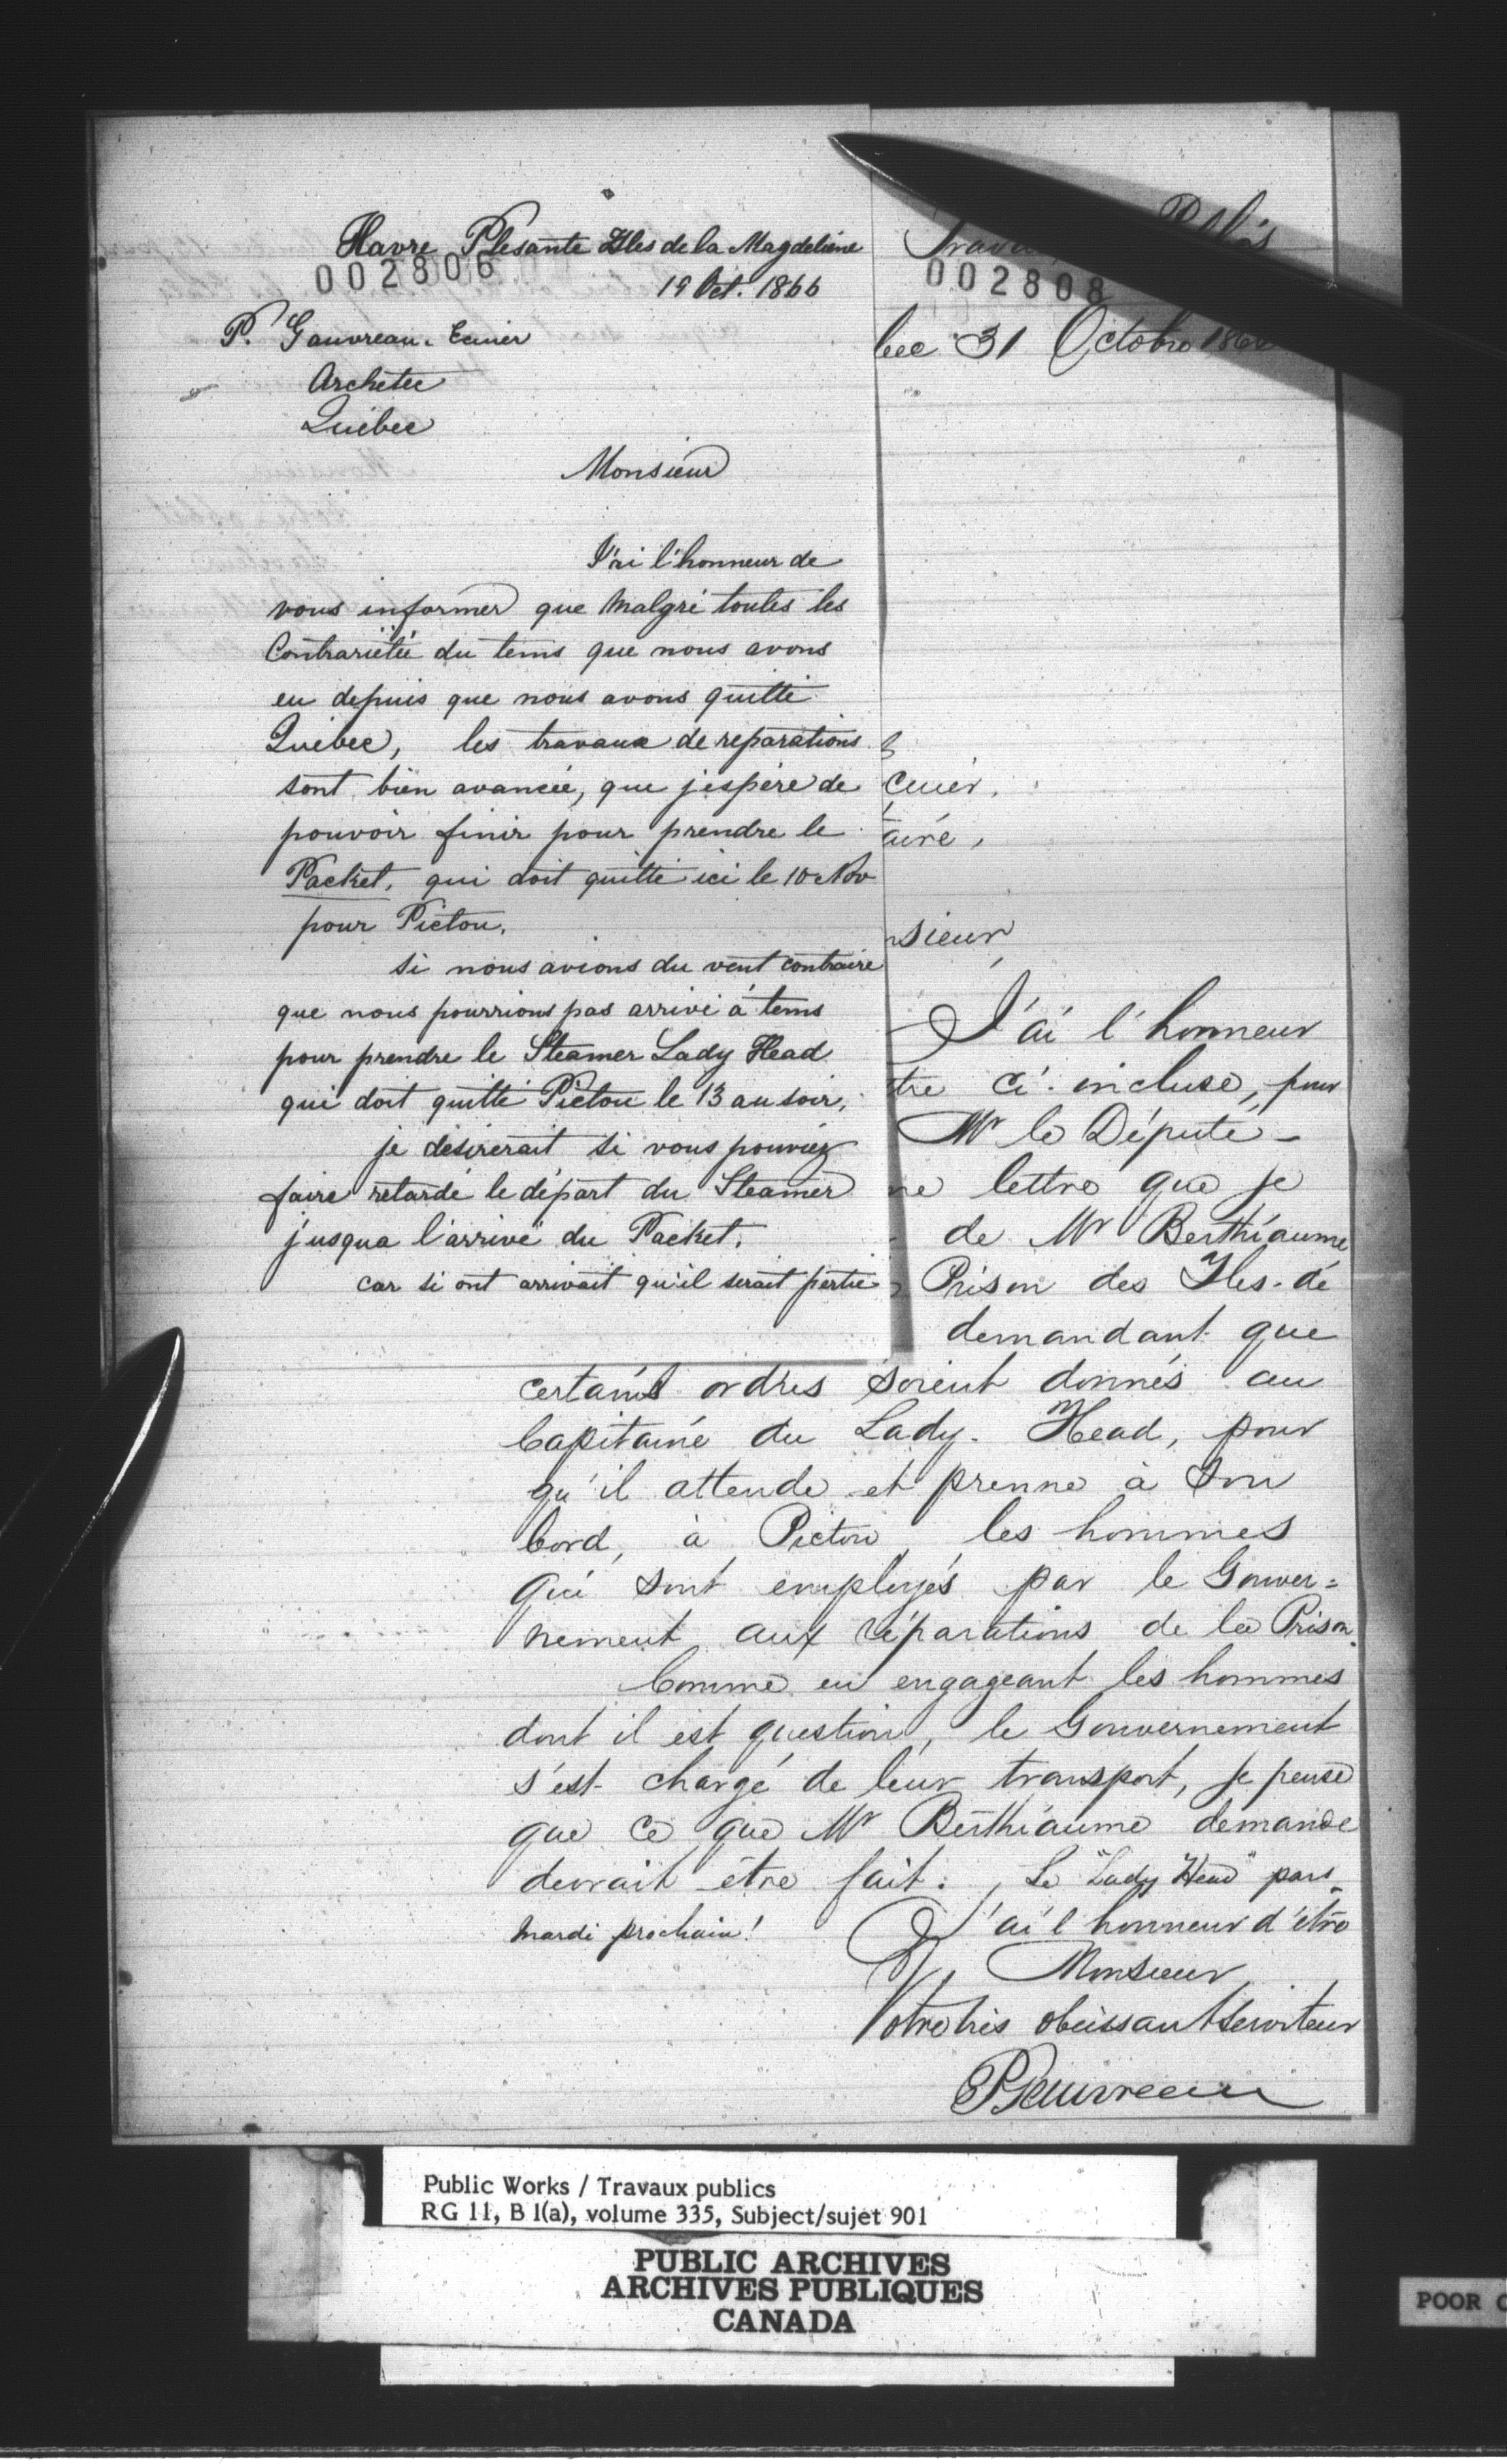 Havre Plesante Iles de la Magdeleine
002806
19 Oct. 1866
P. Gauvreau. Ecuier
Archetec
Québec
Monsieur
J'ai l'honneur de
vous informer que Malgré toutes les
Contrariétée du tems que nous avons
eu depuis que nous avons quitté
Québec, les travaux de reparations
sont bien avancée, que j'espére de
pouvoir finir pour prendre le
Packet, qui doit quitté ici le 10 Nov
pour Pictou.
si nous avions du vent contraire
que nous pourrions pas arrivé à tems
pour prendre le Steamer Lady Head
qui doit quitté Pictou le 13 au soir,
je désirerait si vous pouviez
faire retardé le départ du Steamer
jusqua l'arrivé du Packet.
car si ont arrivait qu'il serait partie
002808
bec 31 Octobre 186
cuiér,
aire,
nsieur,
J'ai l'honneur
tre ci-incluse, pour
Mr le Député-
ne lettre que je
de Mr Berthiaume
Prison des Iles-de
demandant que
certains ordres soient donnés au
Capitaine du Lady-Head, pour
qu'il attende et prenne à son
bord, à Pictou, les hommes
qui sont employés par le Gouver=
nement aux réparations de la Prison.
Comme en engageant les hommes
dont il est question, le Gouvernement
s'est chargé de leur transport, je pense
que ce que Mr Berthiaume demande
devrait être fait. Le "Lady Head" pars
mardi prochain!
J'ai l'honneur d'être
Monsieur
Votre très obeissant Serviteur
PGauvreau
Public Works / Travaux publics
RG 11, B 1(a), volume 335, Subject/sujet 901
PUBLIC ARCHIVES
ARCHIVES PUBLIQUES
CANADA
POOR